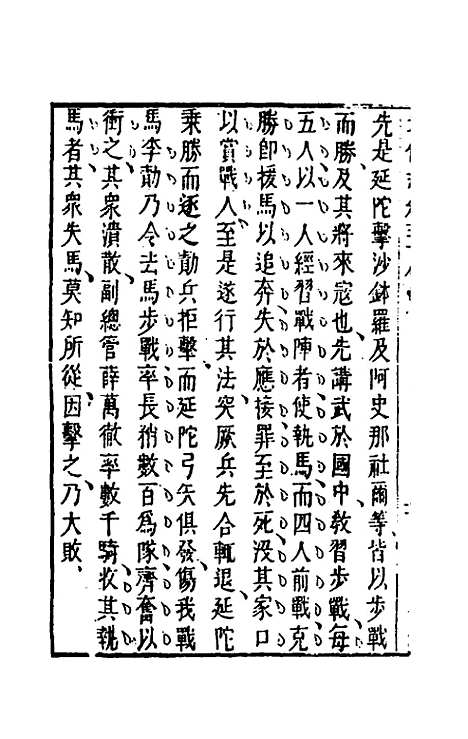 先是延陀擊沙鉢羅及阿史那社爾等皆以步戰
而勝及其將來寇也先講武於國中教習步戰每
五人以一人經習戰陣者使執馬而四人前戰克
勝卽援馬以追奔失於應接罪至於死沒其家口
以賞戰人至是遂行其法突厥兵先合輒退延陀
乘勝而逐之勣兵拒擊而延陀弓矢俱發傷我戰
馬李勣乃令去馬步戰率長矟數百爲隊齊奮以
衝之其衆潰散副總管薛萬徹率數千騎收其執
馬者其衆失馬莫知所從因擊之乃大敗